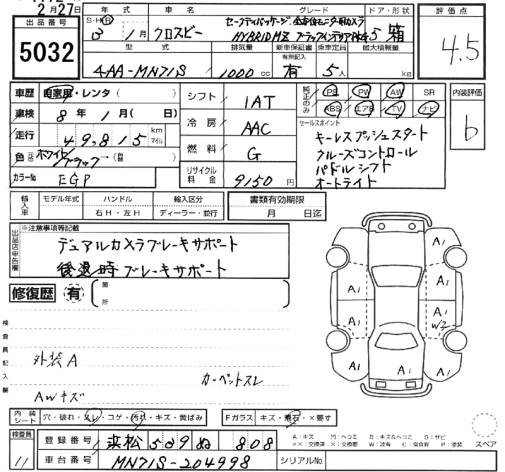 2月27日
出品番号
5032
年式 車名 グレード ドア・形状 評価点
S・H・R 3 1月 クロスビー HYBRID MZ 5 箱
4.5
型式 排気量 新車保証書 乗車定員 最大積載量
有無記入
4AA-MN71S 1000cc 有 5人 kg
車歴 自家用・レンタ( ) シフト IAT
純正のみ PS PW AW SR
ABS エアB TV ナビ
内装評価 b
車検 8年1月( ) 冷房 AAC
セールスポイント
キーレスプッシュスタート
走行 49,815 km マイル 燃料 G
クルーズコントロール
パドルシフト
色 ホワイト/ブラック
カラーNo EGP リサイクル料金 9150円
オートライト
輸入車 モデル年式 ハンドル 輸入区分 書類有効期限
右H・左H ディーラー・並行 月 日迄
出品店申告欄 ※注意事項等記載
デュアルカメラブレーキサポート
後退時ブレーキサポート
修復歴 有 箇所
検査員記入欄
外装A
カーペットスレ
AWキズ
A1 A1 A1 A1 A1 A1 W2 A1
内装シート 穴・破れ・スレ・コゲ・汚れ・キズ・黄ばみ Fガラス キズ・飛石・×要す
検査員 11 登録番号 浜松 509 ぬ 808
車台番号 MN71S-204998 シリアルNo
A:キズ U:ヘコミ B:キズ&ヘコミ S:サビ
XX:交換済 W:波有 C:腐食有 P:塗装 ×:交換要
スペア